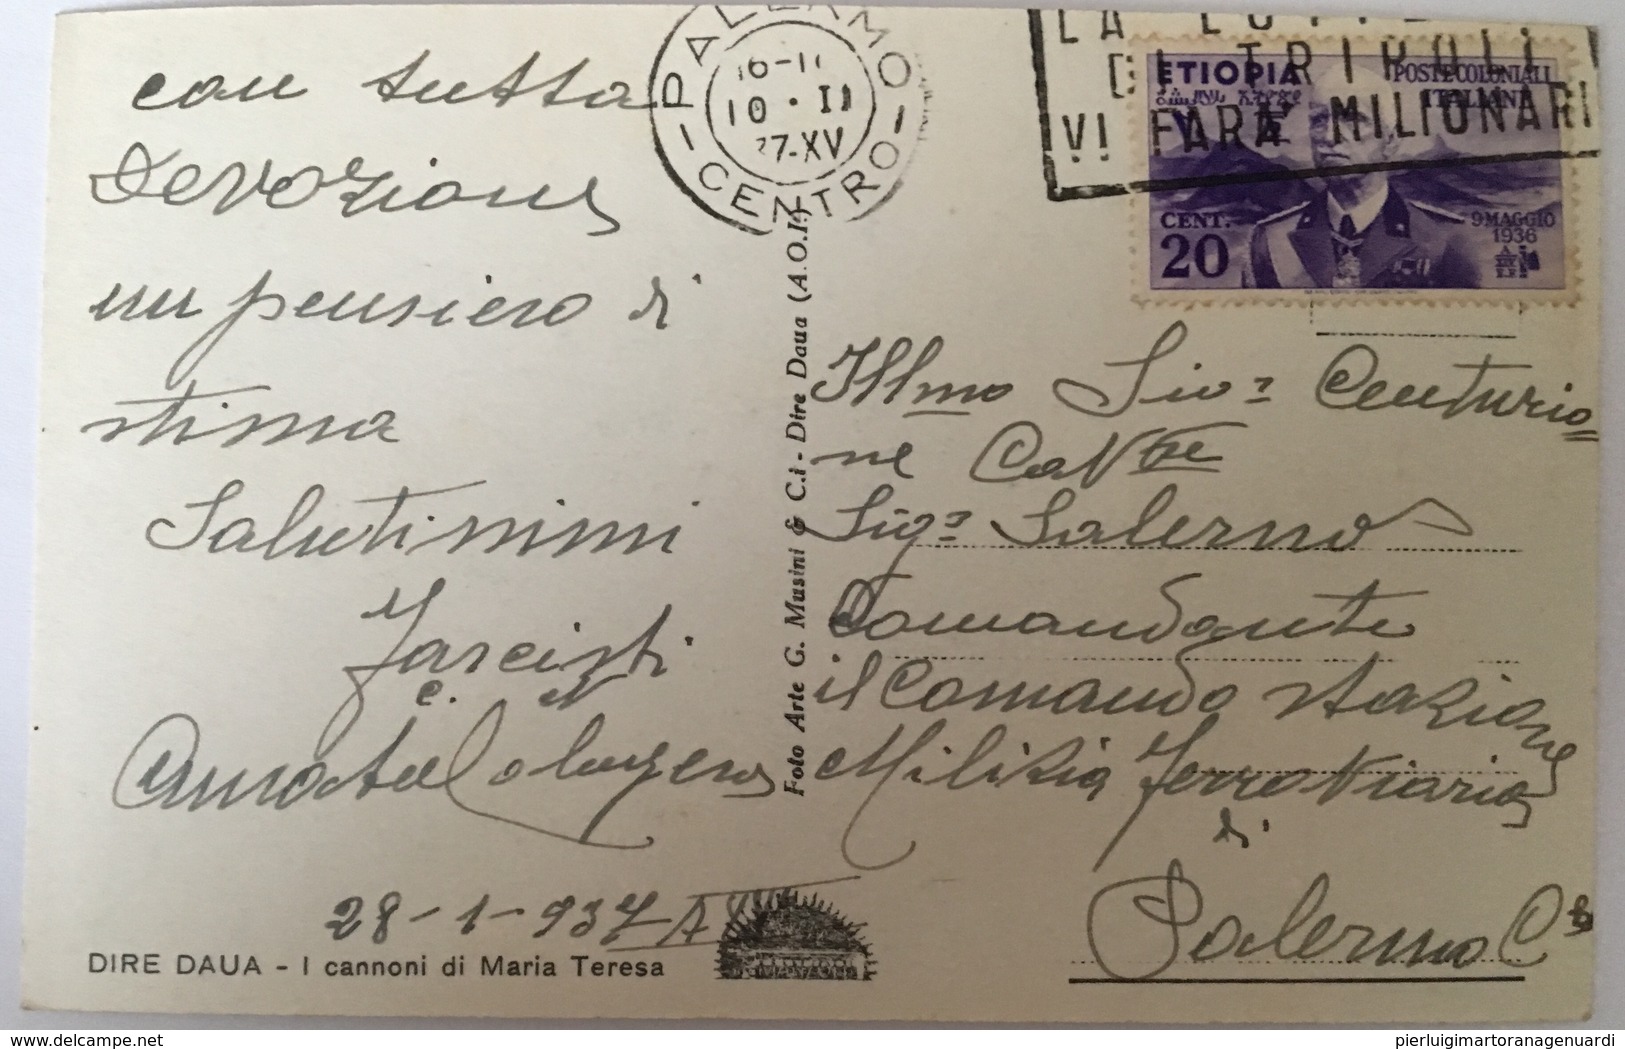 con tutta
Devozione
un pensiero di
stima
Salutissimi
Fascisti
C. N.
28-1-937
DIRE DAUA - I cannoni di Maria Teresa
Foto Arte G. Musini & C.i - Dire Daua (A.O.I.)
PALERMO
16-17
10 · II
37-XV
CENTRO
LA LOTTE
DI TRIPOLI
VI FARA MILIONARI
ETIOPIA
POSTE COLONIALI
ITALIANE
CENT.
20
9 MAGGIO
1936
Illmo Centurio=
ne
Sigr Salerno
Comandante
il Comando Stazione
Milizia Ferroviaria
di
Palermo C
pierluigimartoranagenuardi
delcampe.net